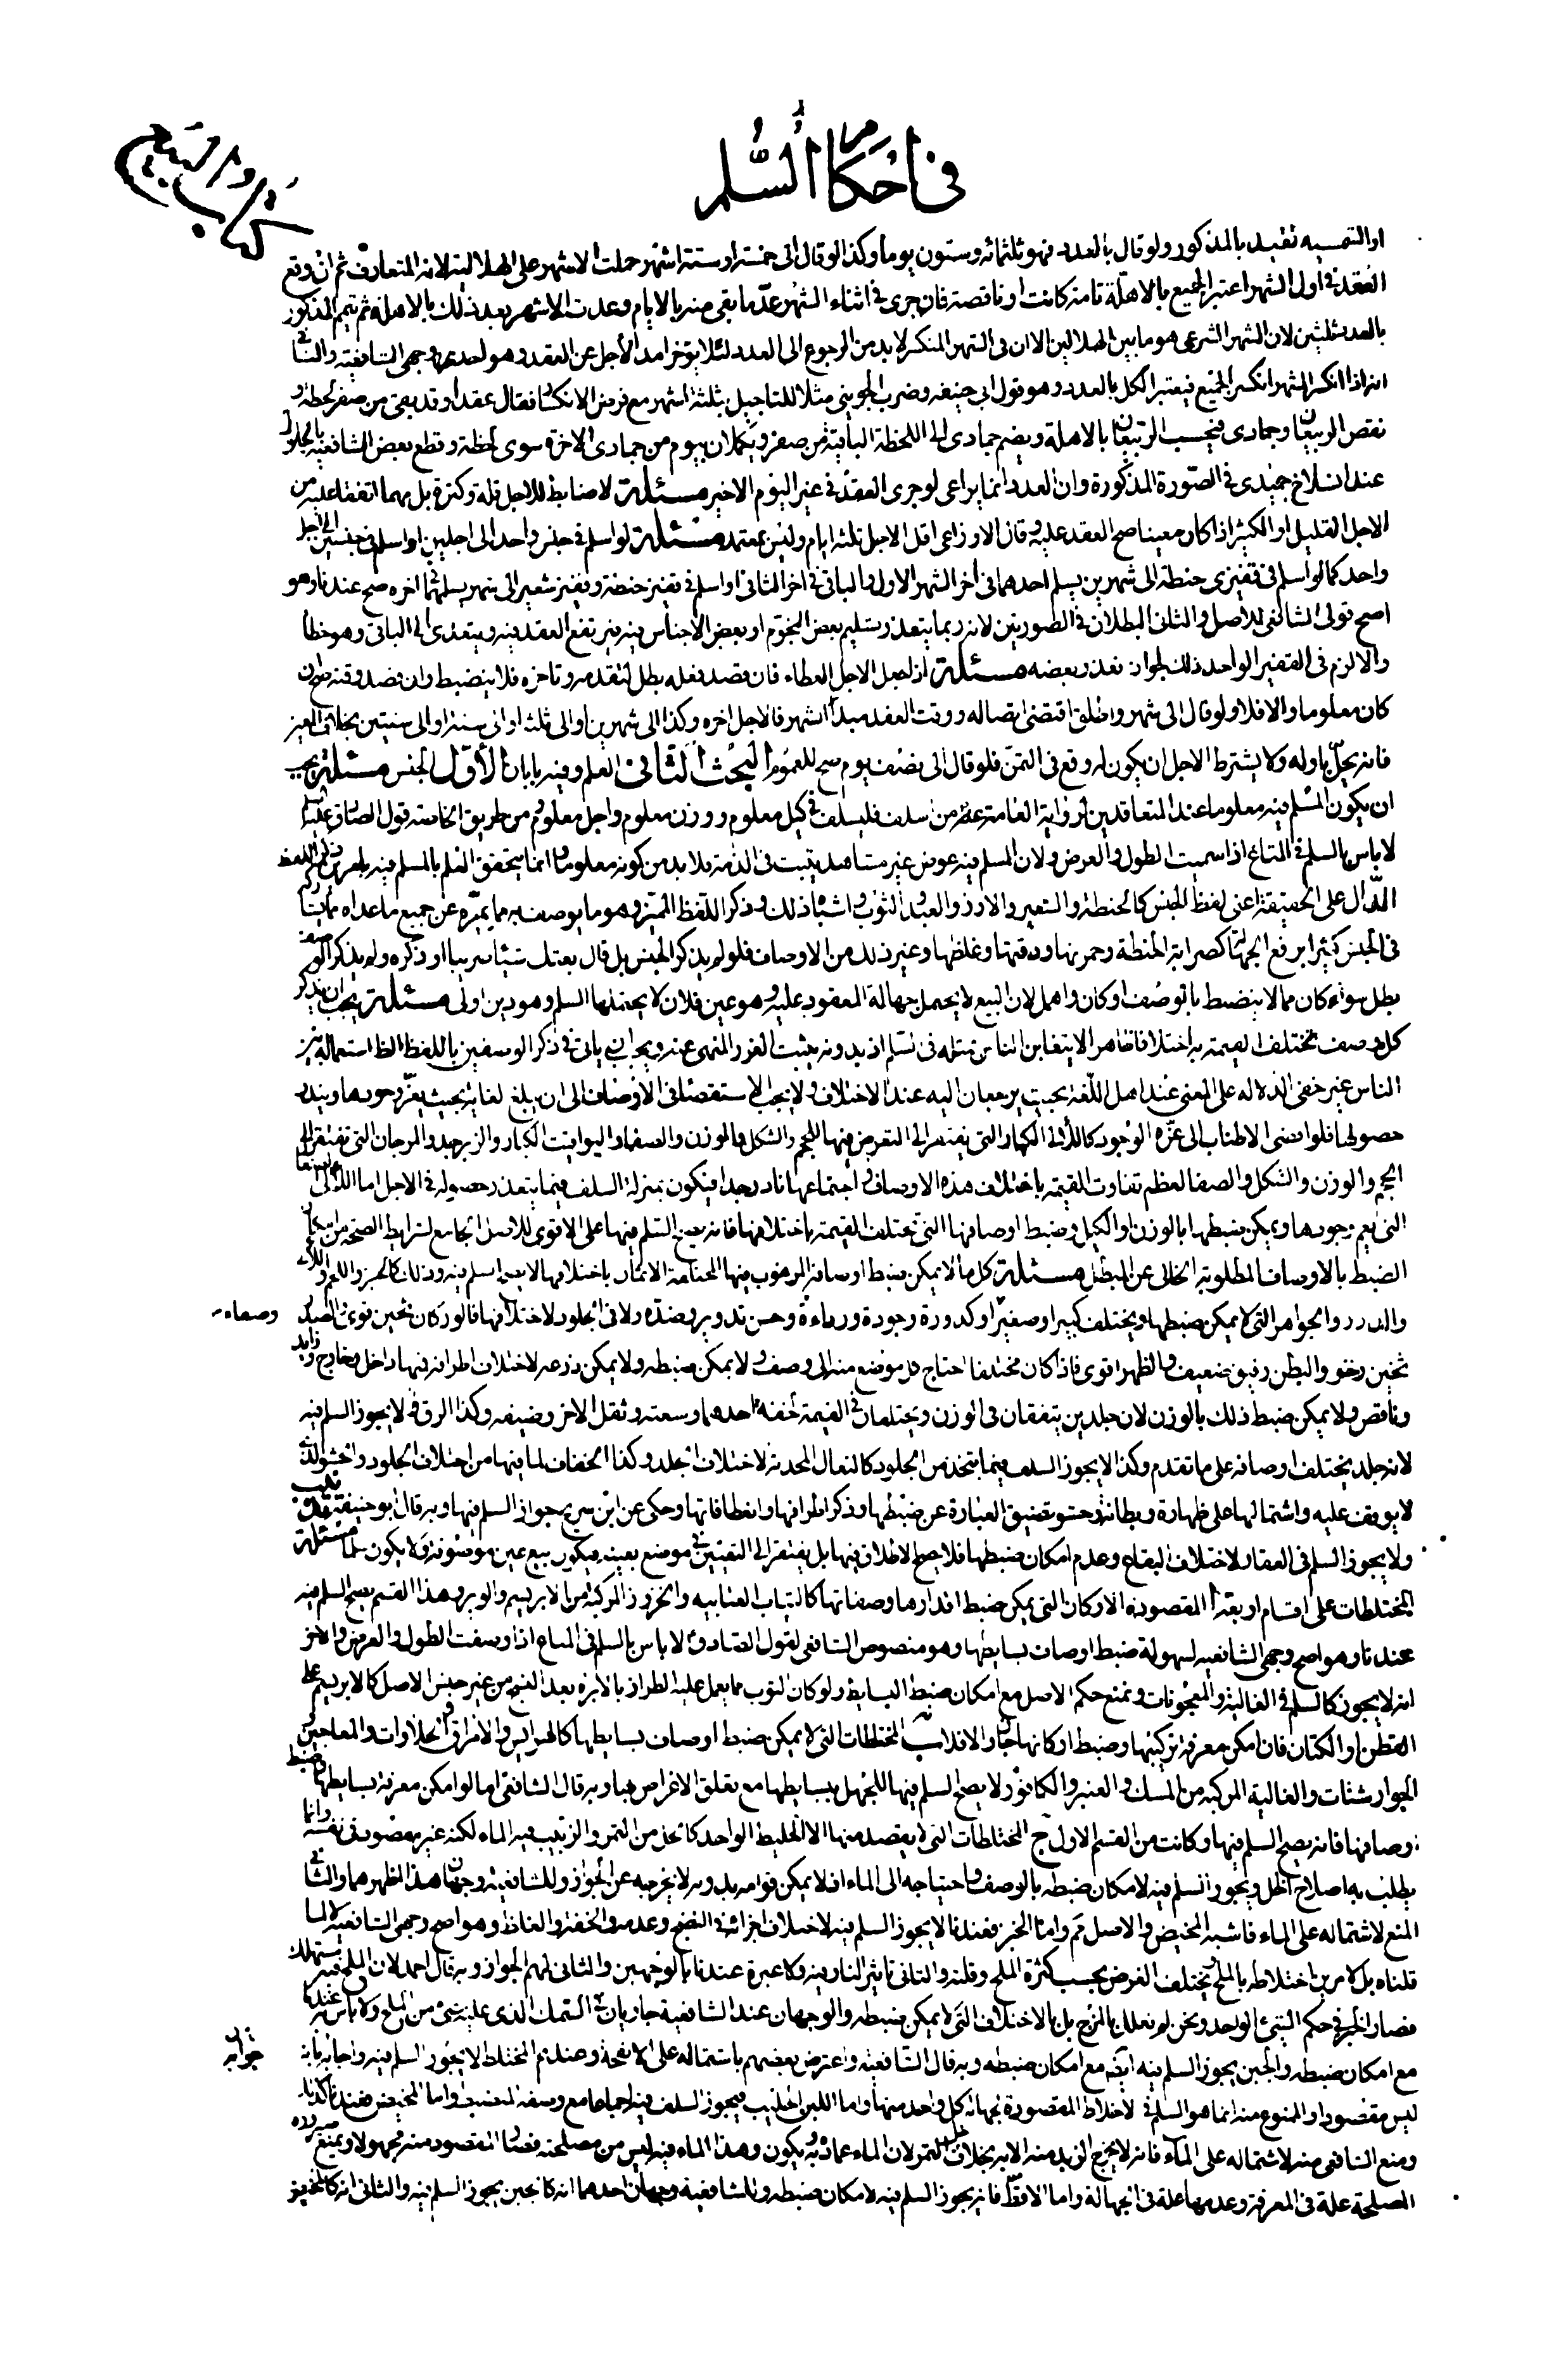 كتاب البيع
في احكام السلم
او التسميه تقيد بالمذكور ولو قال بالعدد فهو ثلثمائه وستون يوما وكذا لو قال الى خمسة او ستة اشهر حملت الاشهر على الهلالية لانه المتعارف ثم ان وقع
العقد في اول الشهر اعتبر الجميع بالاهلة تامة كانت او ناقصة فان جرى في اثناء الشهر عد ما بقى منه بالايام وعدت الاشهر بعد ذلك بالاهلة ثم يتمم المذكور
بالعدد ثلثين لان الشهر الشرعى هو ما بين الهلالين الا ان فى الشهر المنكسر لابد من الرجوع الى العدد لئلا يتوخر امد الاجل عن العقد وهو احد وجهى الشافعية والثانى
انه اذا انكسر الشهر انكسر الجميع فيعتبر الكل بالعدد وهو قول ابى حنيفه وضرب الجوينى مثلا للتاجيل بثلثة اشهر مع فرض الانكسار فقال عقدا وقد بقى من صفر لحظة و
نقص الربيعان وجمادى فيحسب الربيعان بالاهلة ويضم جمادى الى اللحظة الباقية من صفر ويكملان بيوم من جمادى الاخرة سوى لحظة وقطع بعض الشافعية بالحلول
عند انسلاخ جميدى فى الصورة المذكورة وان العدد انما يراعى لو جرى العقد فى غير اليوم الاخير مسئلة لا ضابط للاجل قلة وكثرة بل مهما اتفقا عليه من
الاجل القليل او الكثير اذا كان معينا صح العقد عليه وقال الاوزاعى اقل الاجل ثلثة ايام وليس بمعتمد مسئلة لو اسلم فى جنس واحد الى اجلين او اسلم فى جنسين الى اجل
واحد كما لو اسلم فى قفيزى حنطة الى شهرين يسلم احدهما فى اخر الشهر الاول والباقى فى اخر الثانى او اسلم فى قفيز حنطة وقفيز شعير الى شهر يسلمهما فى اخره صح عندنا وهو
اصح قولى الشافعى للاصل والثانى البطلان فى الصورتين لانه ربما يتعذر تسليم بعض النجوم او بعض الاجناس فيه فيرتفع العقد فيه ويتعدى الى الباقى وهو خطأ
والا لزم فى القفيز الواحد ذلك لجواز تعذر بعضه مسئلة اذا جعل الاجل العطاء فان قصد فعله بطل لتقدمه وتاخره فلا ينضبط وان قصد وقته صح ان
كان معلوما والا فلا ولو قال الى شهر واطلق اقتضى اتصاله ووقت العقد مبدأ الشهر فالاجل اخره وكذا الى شهرين او الى ثلثه او الى سنة او الى سنتين بخلاف المعين
فانه يحل باوله ولا يشترط الاجل ان يكون له وقع فى الثمن فلو قال الى نصف يوم صح للعموم البحث الثانى العلم وفيه بابان الاول الجنس مسئلة يجب
ان يكون المسلم فيه معلوما عند المتعاقدين لرواية العامة عنه من اسلف فليسلف فى كيل معلوم ووزن معلوم واجل معلوم ومن طريق الخاصة قول الصادق عليه السلم
لا باس بالسلم فى المتاع اذا سميت الطول والعرض ولان المسلم فيه عوض غير مشاهد يثبت فى الذمة فلا بد من كونه معلوما وانما يتحقق العلم بالمسلم فيه بامرين ذكر اللفظ
الدال على الحقيقة اعنى لفظ الجنس كالحنطة والشعير والارز والعبد والثوب واشباه ذلك وذكر اللفظ المميز وهو ما يوصف به مما يميزه عن جميع ما عداه مما يشاركه
فى الجنس كثيرا يرفع الجهالة كصرابة الحنطة وحمرتها ودقتها وغلظها وغير ذلك من الاوصاف فلو لم يذكر الجنس بل قال بعتك شيئا سربيا او ذكره ولم يذكر الوصف
بطل سواء كان مما لا ينضبط بالوصف او كان واهمل لان البيع لا يحتمل جهالة المعقود عليه وهو عين فلان لا يحتملها السلم وهو دين اولى مسئلة يجب ان يذكر
كل وصف تختلف القيمة به اختلافا ظاهرا لا يتغابن الناس بمثله فى السلم اذ بدونه يثبت الغرر المنهى عنه ويجب ان ياتى فى ذكر الوصفين باللفظ الظاهر استعماله بين
الناس غير خفى الدلاله على المعنى عند اهل اللغة بحيث يرجعان اليه عند الاختلاف ولا يجب الاستقصاء فى الاوصاف الى ان يبلغ لغاية بحيث يعز وجودها ويندر
حصولها فلو افضى الاطناب الى عزة الوجود كاللآلى الكبار التى يفتقر الى التعرض فيها للحجم والشكل والوزن والصفاء واليواقيت الكبار والزبرجد والمرجان التى تفتقر الى
الحجم والوزن والشكل والصفا لعظم تفاوت القيمة باختلاف هذه الاوصاف واجتماعها نادر جدا فيكون بمنزلة السلف فيما يتعذر حصوله فى الاجل اما اللآلى
التى يعم وجودها ويمكن ضبطها بالوزن او الكيل وضبط اوصافها التى تختلف القيمة باختلافها فانه يصح السلم فيها على الاقوى للاصل الجامع لشرايط الصحة من امكان
الضبط بالاوصاف المطلوبة الخالى عن المبطل مسئلة كل ما لا يمكن ضبط اوصافه المرغوب فيها المختلفة الاثمان باختلافها لا يصح السلم فيه وذلك كالخبز واللحم و
والدرر والجواهر التى لا يمكن ضبطها ويختلف كبيرا وصغيرا وكدورة وجودة ورداءة وحسن تدوير وضده ولا فى الجلود لاختلافها فالورك ثخين قوى والصدر
وصفاء
ثخين رخو والبطن رقيق ضعيف والظهر اقوى فاذا كان مختلفا احتاج كل موضع منه الى وصف ولا يمكن ضبطه ولا يمكن ذرعه لاختلاف اطرافه فيها داخل وخارج وزايد
وناقص ولا يمكن ضبط ذلك بالوزن لان جلدين يتفقان فى الوزن ويختلفان فى القيمة لخفة احدهما وسعته وثقل الاخر وضيقه وكذا الرق لا يجوز السلم فيه
لانه جلد يختلف اوصافه على ما تقدم وكذا لا يجوز السلف فيما يتخذ من الجلود كالنعال المحدثة لاختلاف الجلد وكذا الخفاف لما فيها من اختلاف الجلود والحشو الذى
لا يوقف عليه واشتمالها على ظهارة وبطانة وحشو تضيق العبارة عن ضبطها وذكر اطرافها وانعطافاتها وحكى عن ابن سريج جواز السلم فيها وبه قال ابو حنيفة
ولا يجوز السلم فى العقار لاختلاف البقاع وعدم امكان ضبطها فلا يصح الاطلاق فيها بل يفتقر الى التعيين فى موضع بعينه فيكون بيع عين موصوفة ولا يكون سلما مسئلة
المختلطات على اقسام اربعة ا المقصودة الاركان التى يمكن ضبط اقدارها وصفاتها كالثياب العتابيه والخزوز المركبة من الابريسم والوبر وهذا القسم يصح السلم فيه
عندنا وهو اصح وجهى الشافعيه لسهولة ضبط اوصاف بسايطها وهو منصوص الشافعى لقول الصادق لا باس بالسلم فى المتاع اذا وصفت الطول والعرض والاخر
انه لا يجوز كالسلم فى الغالية والمعجونات ونمنع حكم الاصل مع امكان ضبط البسايط ولو كان الثوب مما يعمل عليه الطراز بالابرة بعد النسج من غير جنس الاصل كالابريسم على
القطن او الكتان فان امكن معرفة تركيبها وضبط اركانها جاز والا فلا ب المختلطات التى لا يمكن ضبط اوصاف بسايطها كالهرايس والامراق والحلاوات والمعاجين
الجوارشنات والغالية المركبة من المسك والعنبر والكافور لا يصح السلم فيها للجهل ببسايطها مع تعلق الاغراض بها وبه قال الشافعى اما لو امكن معرفة بسايطها وضبط
اوصافها فانه يصح السلم فيها وكانت من القسم الاول ج المختلطات التى لا يقصد منها الا الخليط الواحد كالخل من التمر والزبيب فيه الماء لكنه غير مقصود فى نفسه وانما
يطلب به اصلاح الخل ويجوز السلم فيه لامكان ضبطه بالوصف واحتياجه الى الماء اذ لا يمكن قوامه بدونه لا يخرجه عن الجواز وللشافعية وجهان هذا اظهرهما والثانى
المنع لاشتماله على الماء فاشبه المخيض والاصل ثم واما الخبز فعندنا لا يجوز السلم فيه لاختلاف اجزائه فى النضج وعدمه والخفة والغلظ وهو اصح وجهى الشافعية لا لما
قلناه بل لامرين اختلاطه بالملح ويختلف الغرض بحسب كثرة الملح وقلته والثانى تاثير النار فيه ولا عبرة عندنا بالوجهين والثانى لهم الجواز وبه قال احمد لان الملح مستهلك فيه
فصار الخبز فى حكم الشىء الواحد ونحن لم نعلل بالمزج بل بالاختلاف التى لا يمكن ضبطه والوجهان عند الشافعية جاريان فى السمك الذى عليه شىء من الملح ولا باس به عندنا
مع امكان ضبطه والجبن يجوز السلم فيه ايضا مع امكان ضبطه وبه قال الشافعية واعترض بعضهم باشتماله على الانفحة وعندهم المختلط لا يجوز السلم فيه واجابه بانه
جوابه
ليس مقصودا والممنوع منه انما هو السلم فى الاخلاط المقصودة بجهالة كل واحد منها واما اللبن الحليب فيجوز السلف فيه اجماعا مع وصفه المنضبط واما المخيض فعندنا كذلك
ومنع الشافعى منه لاشتماله على الماء فانه لا يخرج الزبد منه الا به بخلاف خل التمر لان الماء عماد به يكون وهذا الماء فيه ليس من مصلحته فصار المقصود منه مجهولا ونمنع صيرورة
المصلحة علة فى المعرفة وعدمها علة فى الجهالة واما الاقط فانه يجوز السلم فيه لامكان ضبطه وللشافعية وجهان احدهما انه كالجبن يجوز السلم فيه والثانى انه كالمخيض